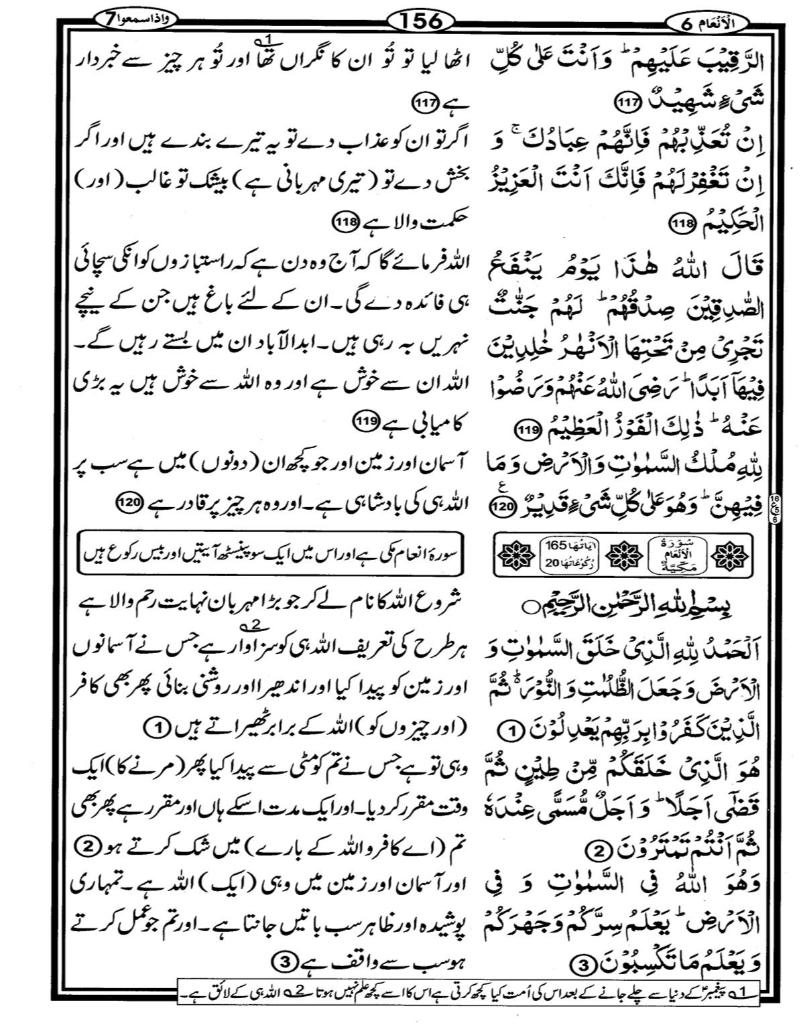 الانعام 6
156
واذا سمعوا 7
الرَّقِيۡبَ عَلَيۡهِمۡ ؕ وَاَنۡتَ عَلٰى كُلِّ
شَىۡءٍ شَهِيۡدٌ 117
اِنۡ تُعَذِّبۡهُمۡ فَاِنَّهُمۡ عِبَادُكَ ۚ وَ
اِنۡ تَغۡفِرۡ لَهُمۡ فَاِنَّكَ اَنۡتَ الۡعَزِيۡزُ
الۡحَكِيۡمُ 118
قَالَ اللّٰهُ هٰذَا يَوۡمُ يَنۡفَعُ
الصّٰدِقِيۡنَ صِدۡقُهُمۡ ؕ لَهُمۡ جَنّٰتٌ
تَجۡرِىۡ مِنۡ تَحۡتِهَا الۡاَنۡهٰرُ خٰلِدِيۡنَ
فِيۡهَاۤ اَبَدًا ؕ رَضِىَ اللّٰهُ عَنۡهُمۡ وَرَضُوۡا
عَنۡهُ ؕ ذٰلِكَ الۡفَوۡزُ الۡعَظِيۡمُ 119
لِلّٰهِ مُلۡكُ السَّمٰوٰتِ وَالۡاَرۡضِ وَمَا
فِيۡهِنَّ ؕ وَهُوَ عَلٰى كُلِّ شَىۡءٍ قَدِيۡرٌ 120
سُوۡرَةُ الۡاَنۡعَام مَكِّيَّةٌ
اٰيَاتُهَا 165
رُكُوۡعَاتُهَا 20
بِسۡمِ اللّٰهِ الرَّحۡمٰنِ الرَّحِيۡمِ
اَلۡحَمۡدُ لِلّٰهِ الَّذِىۡ خَلَقَ السَّمٰوٰتِ وَ
الۡاَرۡضَ وَجَعَلَ الظُّلُمٰتِ وَالنُّوۡرَ ؕ ثُمَّ
الَّذِيۡنَ كَفَرُوۡا بِرَبِّهِمۡ يَعۡدِلُوۡنَ 1
هُوَ الَّذِىۡ خَلَقَكُمۡ مِّنۡ طِيۡنٍ ثُمَّ
قَضٰۤى اَجَلًا ؕ وَاَجَلٌ مُّسَمًّى عِنۡدَهٗ
ثُمَّ اَنۡتُمۡ تَمۡتَرُوۡنَ 2
وَهُوَ اللّٰهُ فِى السَّمٰوٰتِ وَ فِى
الۡاَرۡضِ ؕ يَعۡلَمُ سِرَّكُمۡ وَ جَهۡرَكُمۡ
وَ يَعۡلَمُ مَا تَكۡسِبُوۡنَ 3
اٹھا لیا تو تُو ان کا نگراں تھا 1 اور تُو ہر چیز سے خبردار
ہے 117
اگر تو ان کو عذاب دے تو یہ تیرے بندے ہیں اور اگر
بخش دے تو (تیری مہربانی ہے) بیشک تو غالب (اور)
حکمت والا ہے 118
اللہ فرمائے گا کہ آج وہ دن ہے کہ راستبازوں کو انکی سچائی
ہی فائدہ دے گی۔ ان کے لئے باغ ہیں جن کے نیچے
نہریں بہ رہی ہیں۔ ابدالآباد ان میں بستے رہیں گے۔
اللہ ان سے خوش ہے اور وہ اللہ سے خوش ہیں یہ بڑی
کامیابی ہے 119
آسمان اور زمین اور جو کچھ ان (دونوں) میں ہے سب پر
اللہ ہی کی بادشاہی ہے۔ اور وہ ہر چیز پر قادر ہے 120
سورۂ انعام مکی ہے اور اس میں ایک سو پینسٹھ آیتیں اور بیس رکوع ہیں
شروع اللہ کا نام لے کر جو بڑا مہربان نہایت رحم والا ہے
ہر طرح کی تعریف اللہ ہی کو سزاوار ہے 2 جس نے آسمانوں
اور زمین کو پیدا کیا اور اندھیرا اور روشنی بنائی پھر بھی کافر
(اور چیزوں کو) اللہ کے برابر ٹھیراتے ہیں 1
وہی تو ہے جس نے تم کو مٹی سے پیدا کیا پھر (مرنے کا) ایک
وقت مقرر کر دیا۔ اور ایک مدت اسکے ہاں اور مقرر ہے پھر بھی
تم (اے کافرو اللہ کے بارے) میں شک کرتے ہو 2
اور آسمان اور زمین میں وہی (ایک) اللہ ہے۔ تمہاری
پوشیدہ اور ظاہر سب باتیں جانتا ہے۔ اور تم جو عمل کرتے
ہو سب سے واقف ہے 3
1 پیغمبرؑ کے دنیا سے چلے جانے کے بعد اس کی اُمت کیا کچھ کرتی ہے اس کا اسے کچھ علم نہیں ہوتا 2 اللہ ہی کے لائق ہے۔